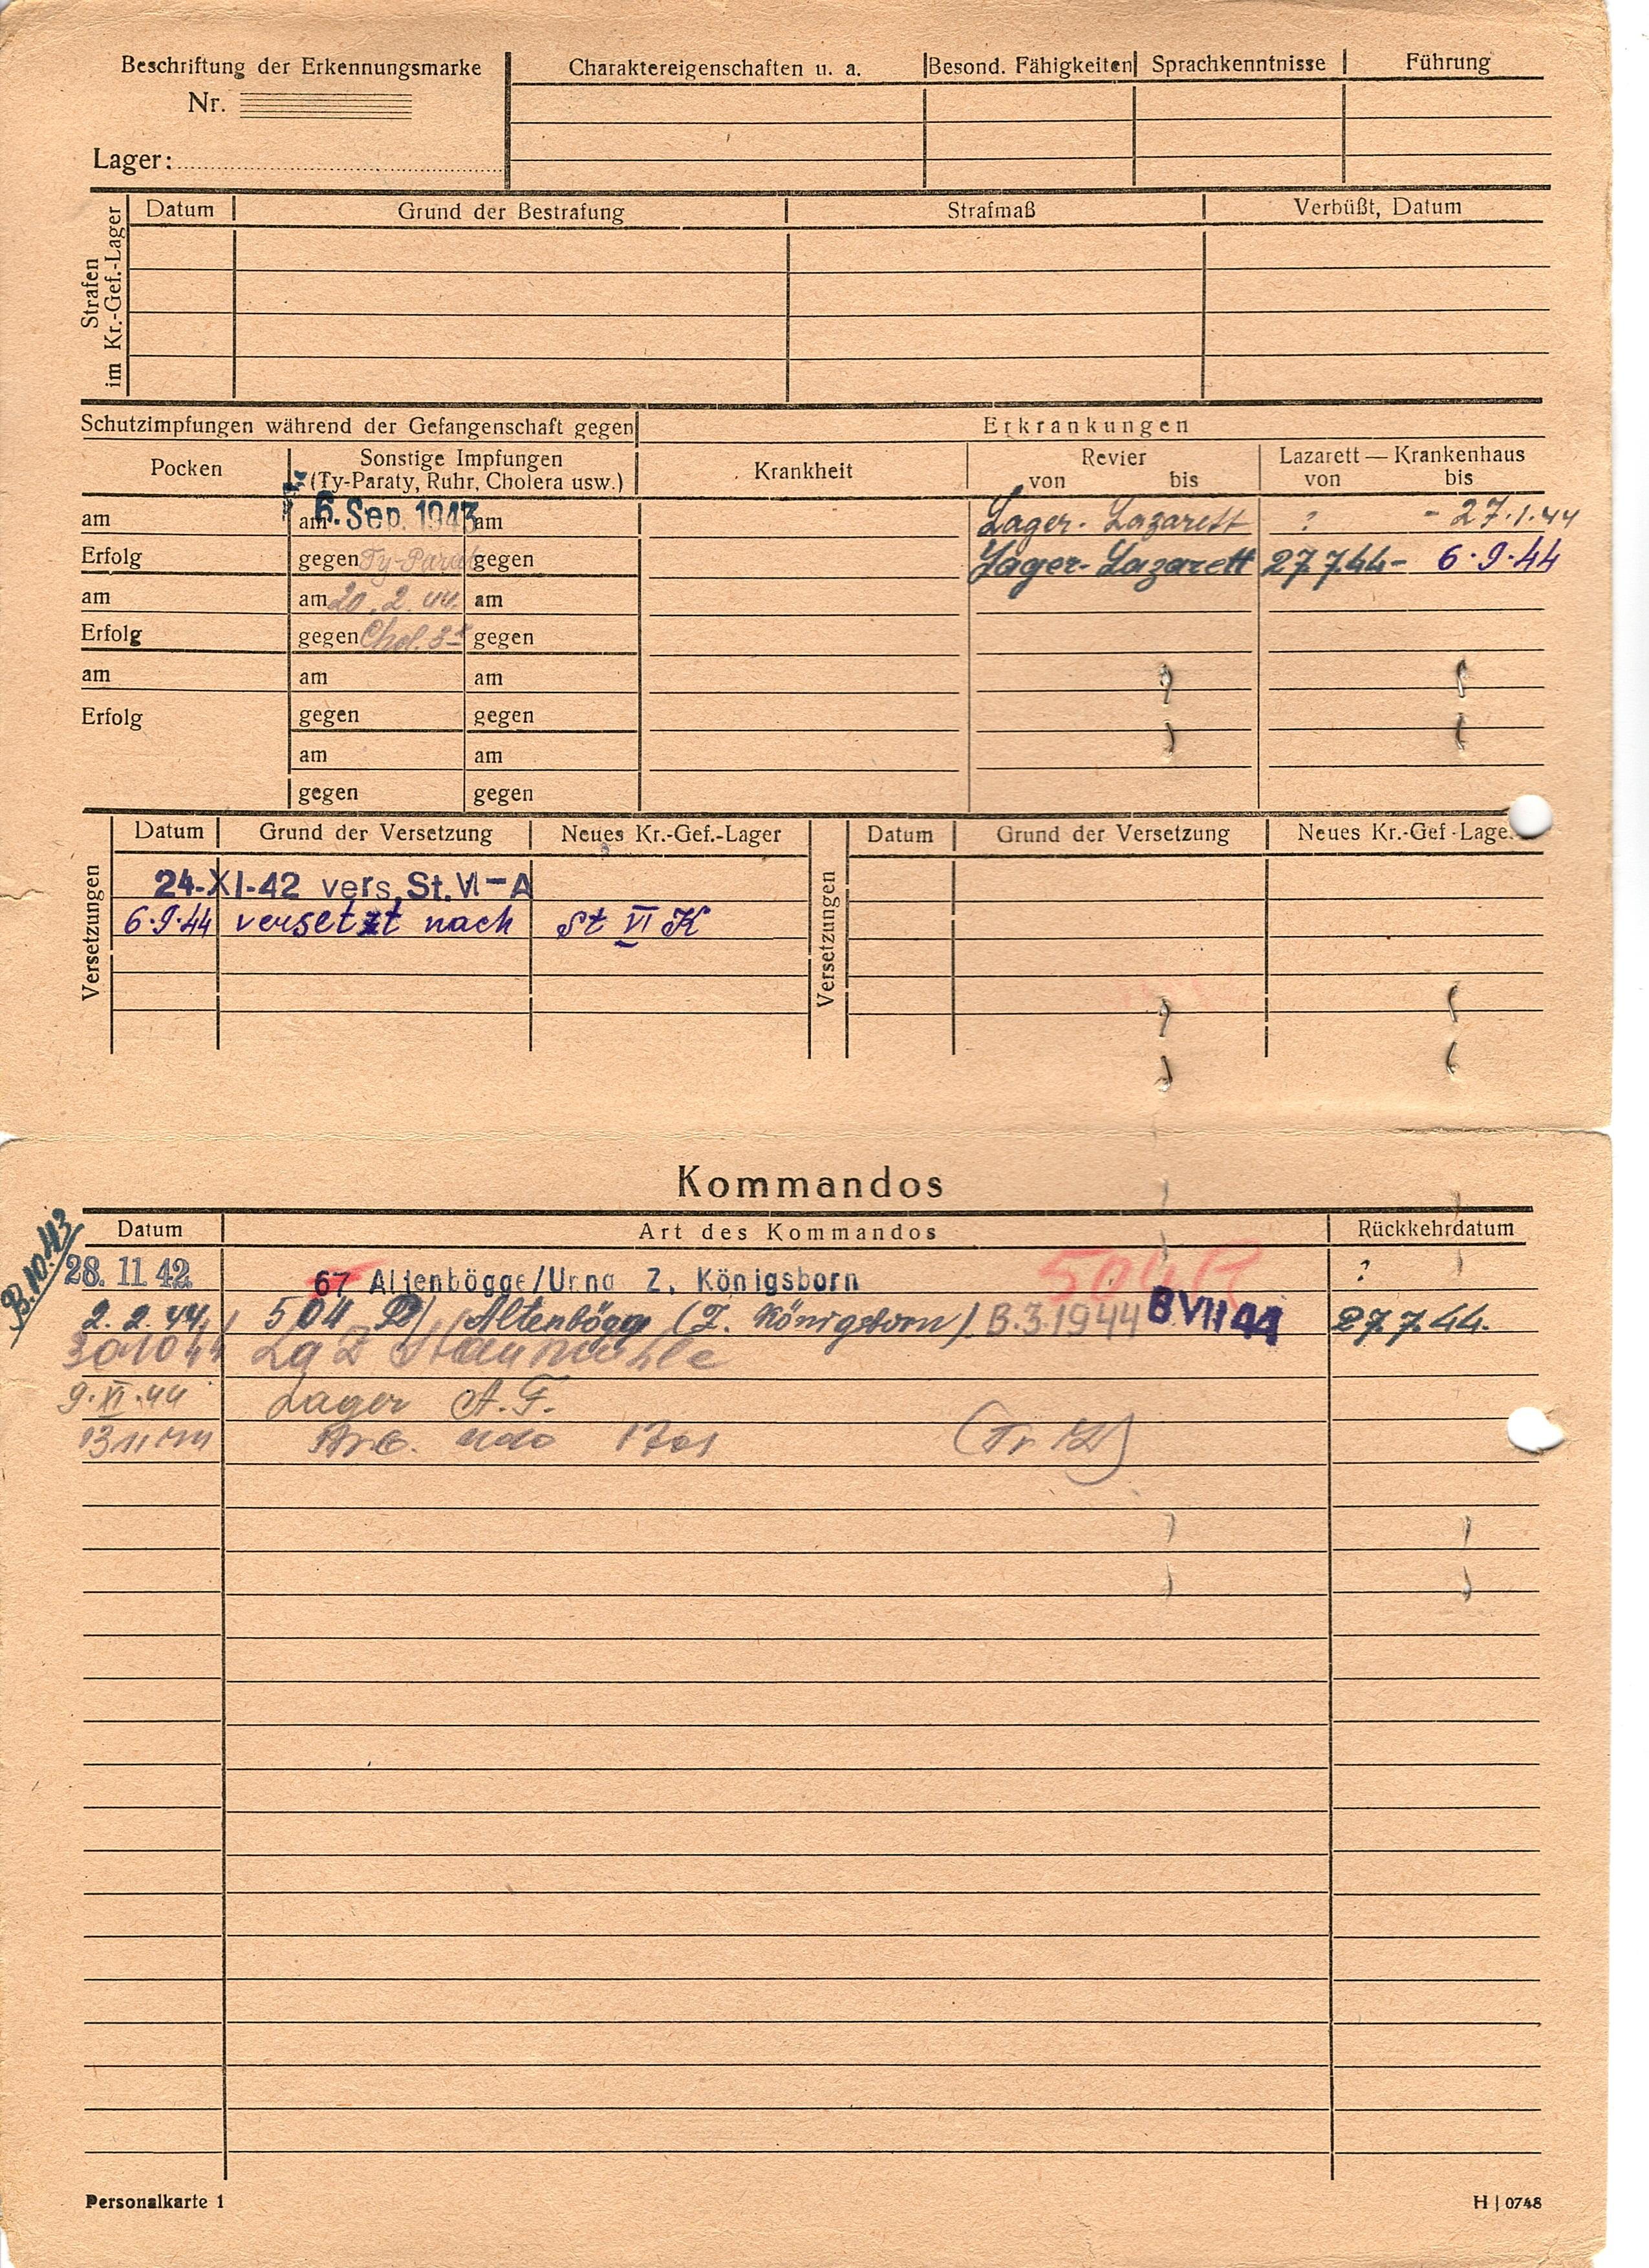 Beschriftung der Erkennungsmarke
Nr.
Lager:
Charaktereigenschaften u. a. Besond. Fähigkeiten Sprachkenntnisse Führung
Strafen im Kr.-Gef.-Lager
Datum Grund der Bestrafung Strafmaß Verbüßt, Datum
Schutzimpfungen während der Gefangenschaft gegen Erkrankungen
Pocken Sonstige Impfungen (Ty-Paraty, Ruhr, Cholera usw.) Krankheit Revier von bis Lazarett — Krankenhaus von bis
am am 6. Sep. 1943 am Lager-Lazarett ? - 27.1.44
Erfolg gegen Ty-Parat gegen Lager-Lazarett 27.7.44- 6.9.44
am am 20.2.44 am
Erfolg gegen Chol. 3x gegen
am am am
Erfolg gegen gegen
am am
gegen gegen
Versetzungen Versetzungen
Datum Grund der Versetzung Neues Kr.-Gef.-Lager Datum Grund der Versetzung Neues Kr.-Gef.-Lage
24-XI-42 vers. St. VI-A
6.9.44 versetzt nach St VI K
Kommandos
Datum Art des Kommandos Rückkehrdatum
B.10.43
28. 11 42 67 Altenbögge/Unna Z. Königsborn 504 R ?
2.2.44 504 R) Altenbögg (Z. Königsborn) B.3.1944 B VII 44 27.7.44.
30 10 44 Staumühle
9.XI.44 Lager A.F.
13 11 44
Personalkarte 1 H | 0748